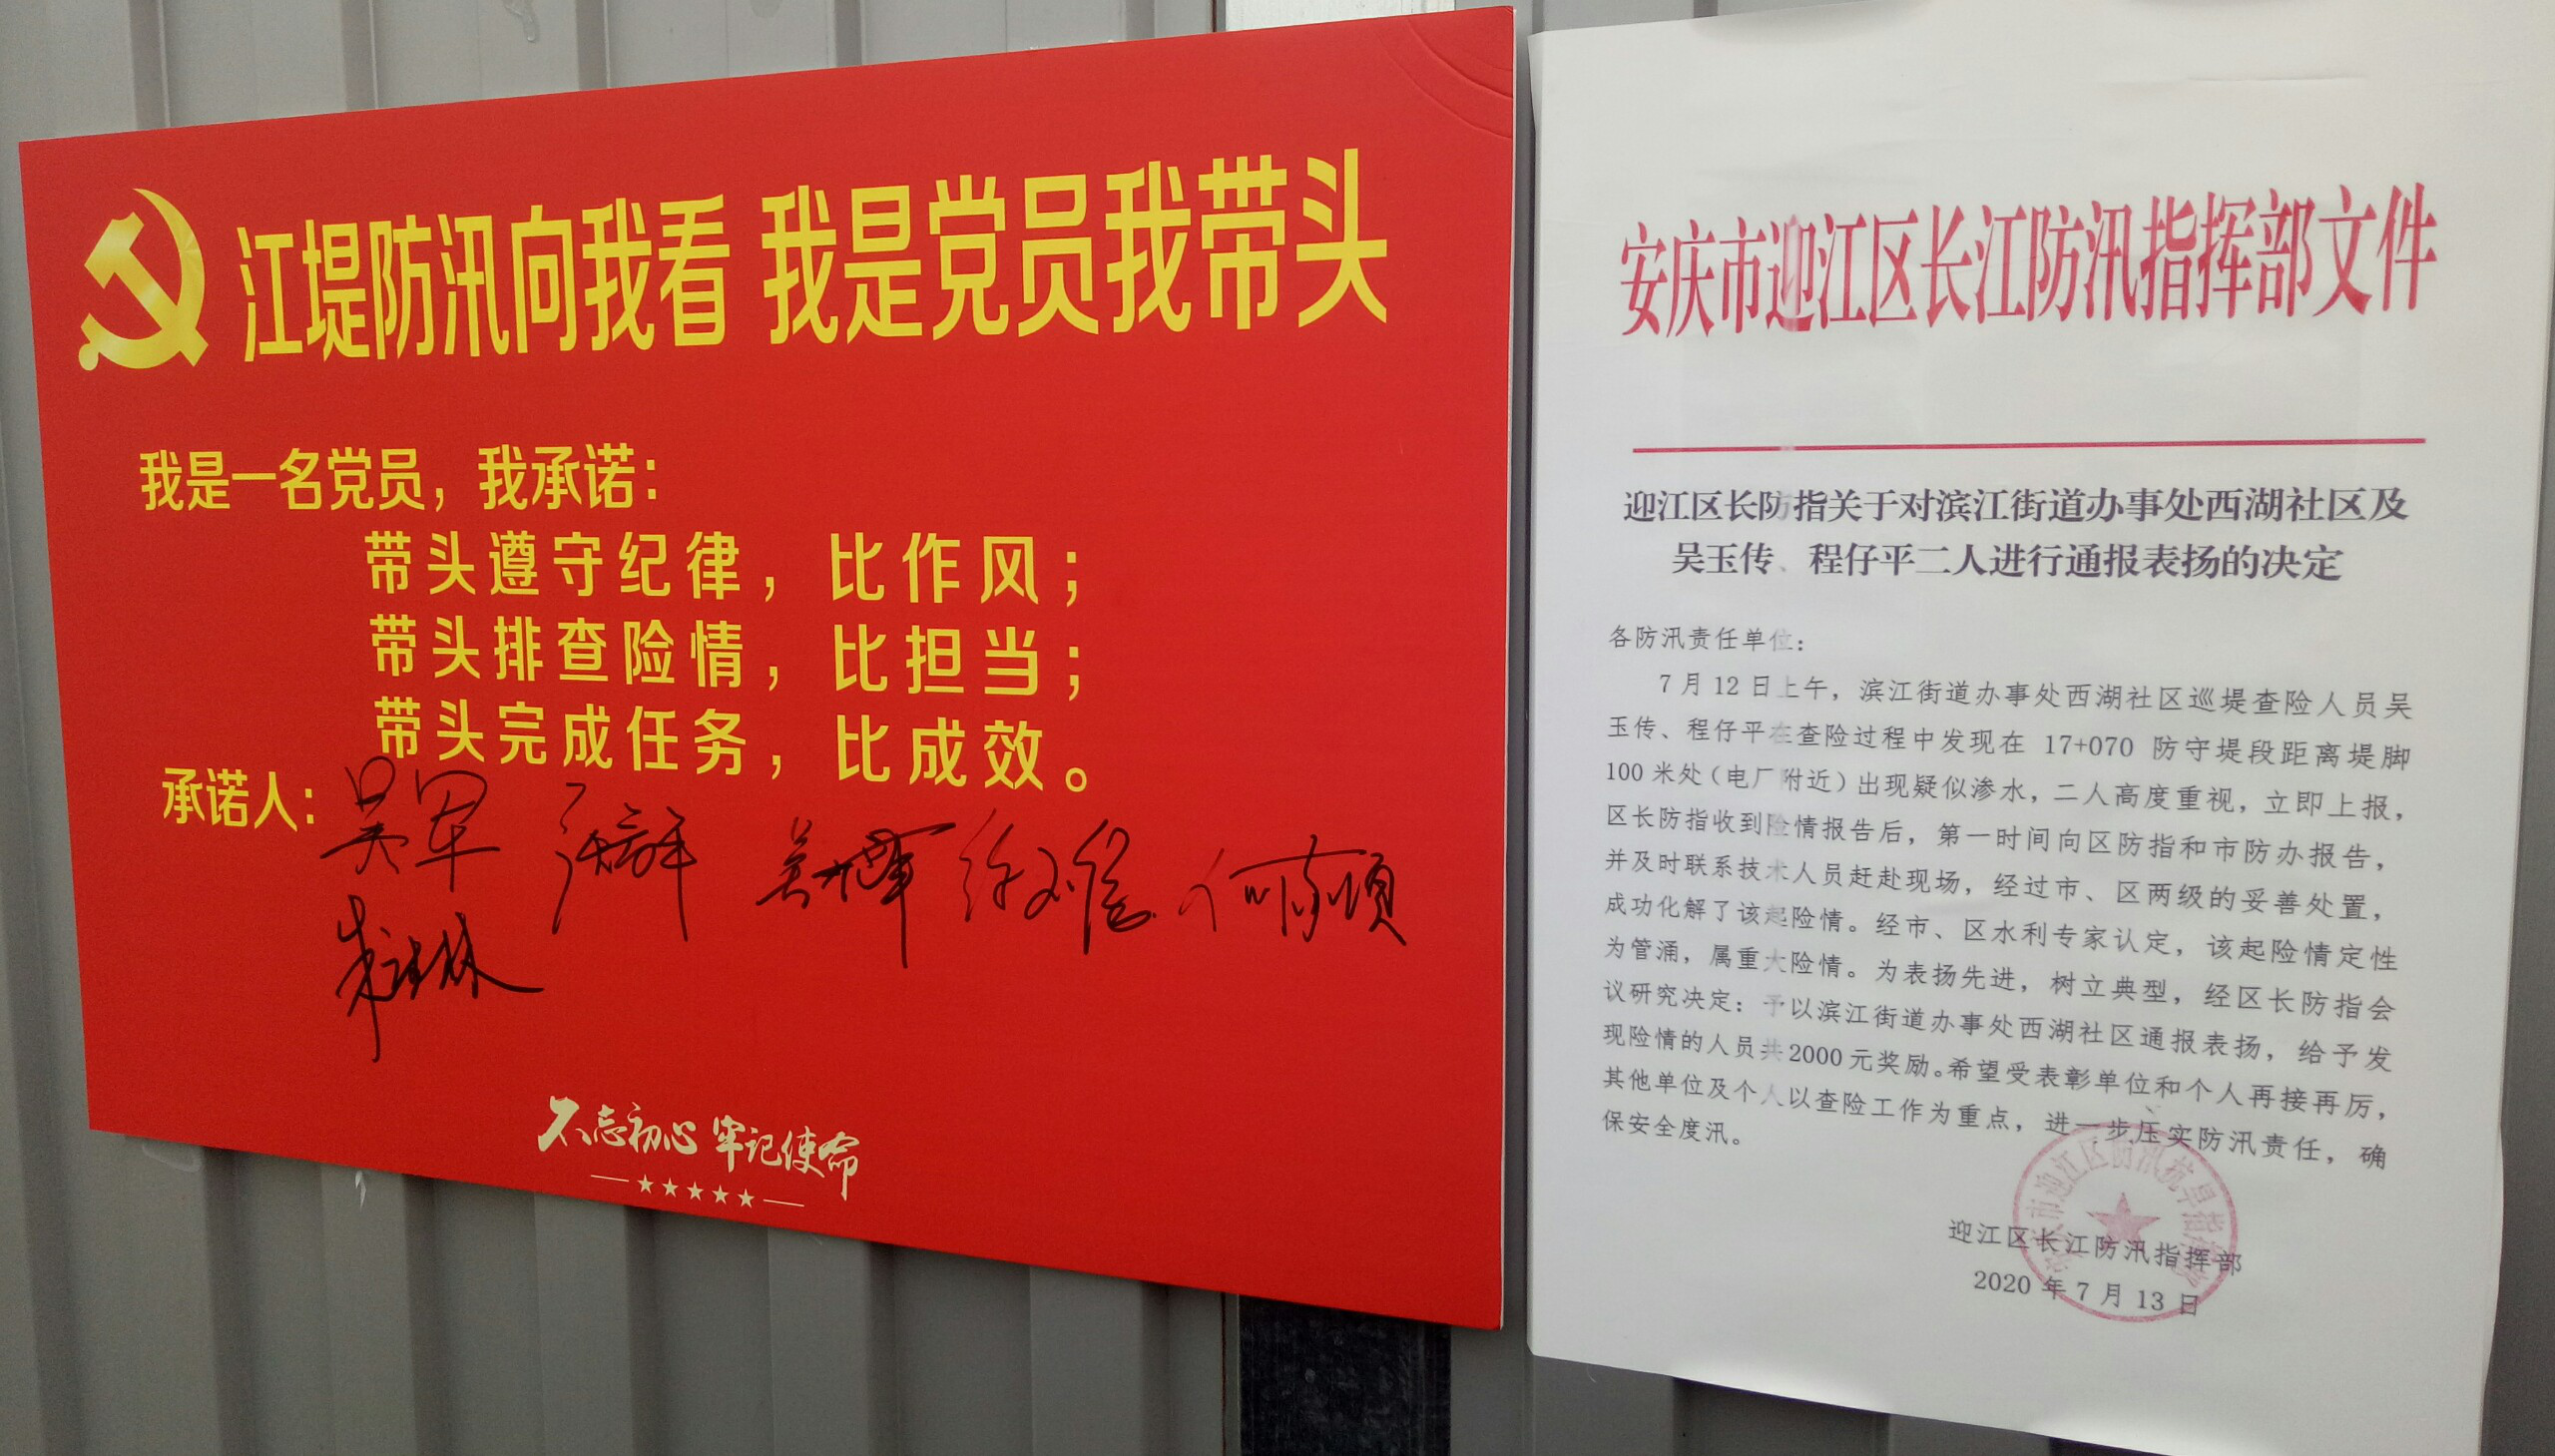 江堤防汛向我看 我是党员我带头
我是一名党员，我承诺：
带头遵守纪律，比作风；
带头排查险情，比担当；
带头完成任务，比成效。
承诺人：吴军
不忘初心 牢记使命
安庆市迎江区长江防汛指挥部文件
迎江区长防指关于对滨江街道办事处西湖社区及
吴玉传、程仔平二人进行通报表扬的决定
各防汛责任单位：
7月12日上午，滨江街道办事处西湖社区巡堤查险人员吴
玉传、程仔平在查险过程中发现在 17+070 防守堤段距离堤脚
100米处（电厂附近）出现疑似渗水，二人高度重视，立即上报，
区长防指收到险情报告后，第一时间向区防指和市防办报告，
并及时联系技术人员赶赴现场，经过市、区两级的妥善处置，
成功化解了该起险情。经市、区水利专家认定，该起险情定性
为管涌，属重大险情。为表扬先进，树立典型，经区长防指会
议研究决定：予以滨江街道办事处西湖社区通报表扬，给予发
现险情的人员共2000元奖励。希望受表彰单位和个人再接再厉，
其他单位及个人以查险工作为重点，进一步压实防汛责任，确
保安全度汛。
迎江区长江防汛指挥部
2020年7月13日